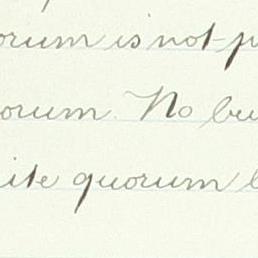 orum is not p
orum. No bu
ite quorum b